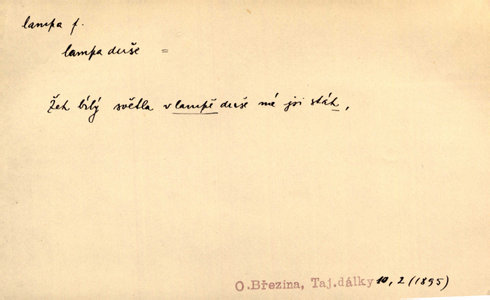 lampa f.
lampa duše =
Žeh bílý světla v lampě duše mé jsi stáh,
O.Březina, Taj.dálky 10, 2 (1895)